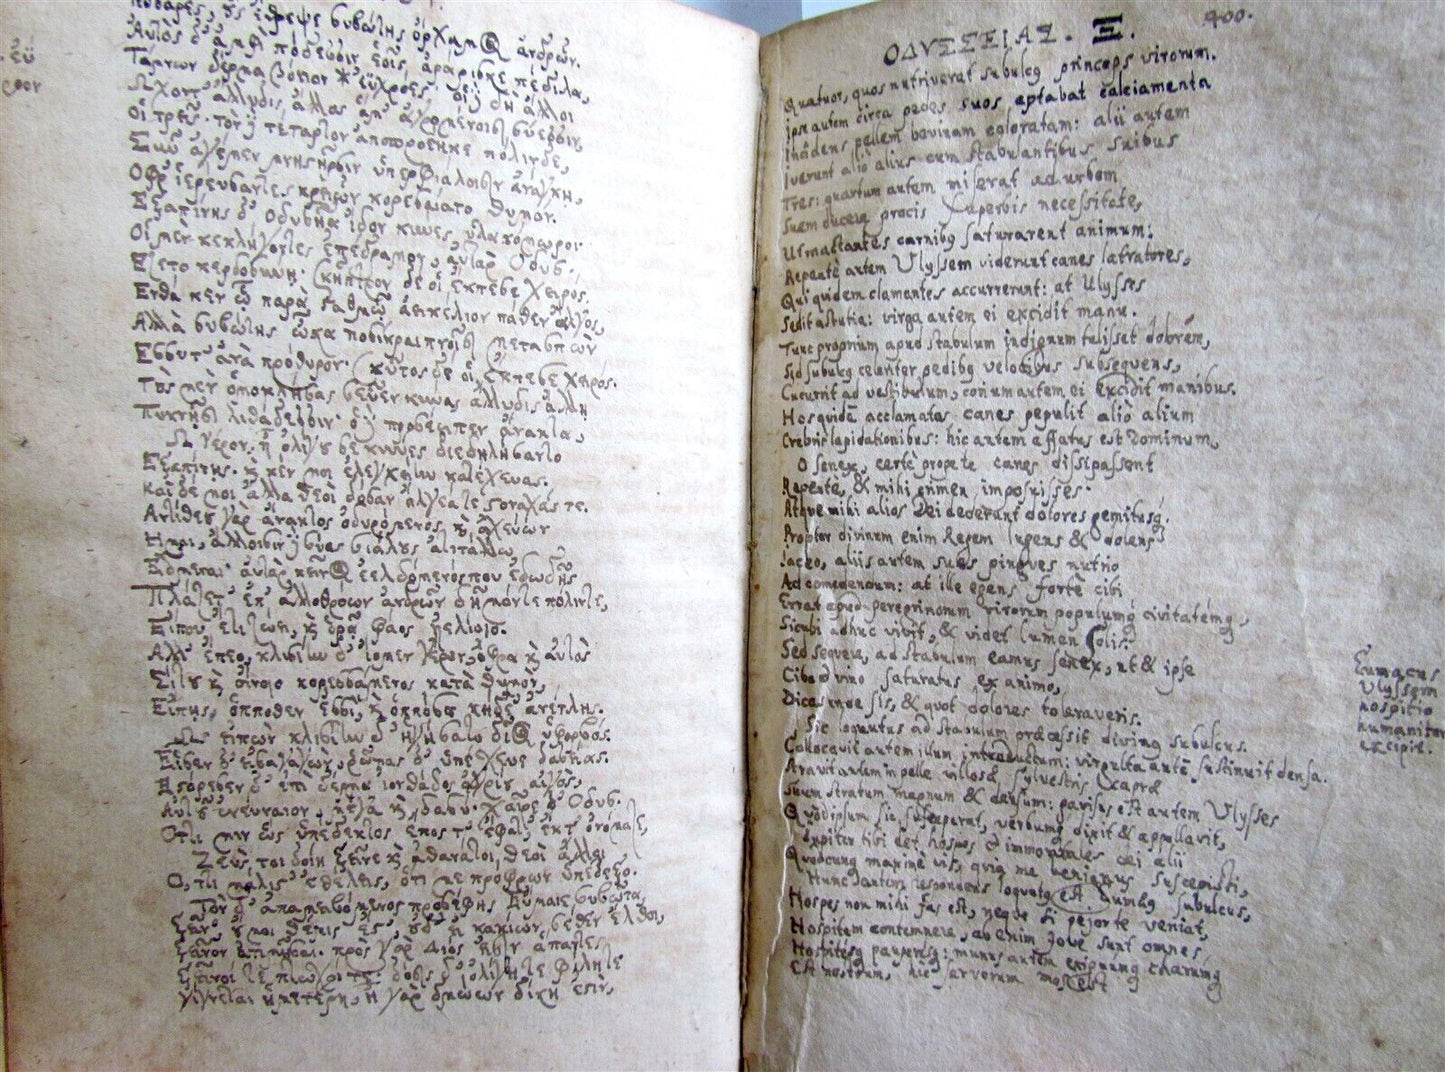 τέσσαρες, οὓς ἔθρεψε συβώτης ὄρχαμος ἀνδρῶν.
Αὐτὸς δ' ἀμφὶ πόδεσσιν ἑοῖς ἀράρισκε πέδιλα,
Τάμνων δέρμα βόειον ἐϋχροές· οἱ δὲ δὴ ἄλλοι
Ὤχοντ' ἄλλυδις ἄλλος ἅμ' ἀγρομένοισι σύεσσιν,
Οἱ τρεῖς· τὸν δὲ τέταρτον ἀποπροέηκε πόλινδε,
Σῦν ἀγέμεν μνηστῆρσιν ὑπερφιάλοισιν ἀνάγκῃ,
Ὄφρ' ἱερεύσαντες κρειῶν κορεσαίατο θυμόν.
Ἐξαπίνης δ' Ὀδυσῆα ἴδον κύνες ὑλακόμωροι·
Οἱ μὲν κεκλήγοντες ἐπέδραμον, αὐτὰρ Ὀδυσ.
Ἕζετο κερδοσύνῃ· σκῆπτρον δέ οἱ ἔκπεσε χειρός.
Ἔνθα κεν ᾧ παρὰ σταθμῷ ἀεικέλιον πάθεν ἄλγος,
Ἀλλὰ συβώτης ὦκα ποσὶ κραιπνοῖσι μετασπὼν
Ἔσσυτ' ἀνὰ πρόθυρον· σκῦτος δέ οἱ ἔκπεσε χειρός.
Τοὺς μὲν ὁμοκλήσας σεῦεν κύνας ἄλλυδις ἄλλῃ
Πυκνῇσι λιθάδεσσιν· ὁ δὲ προσέειπεν ἄνακτα,
Ὦ γέρον, ἦ ὀλίγου σε κύνες διεδηλήσαντο
Ἐξαπίνης· καί κέν μοι ἐλεγχείην κατέχευας.
Καὶ δέ μοι ἄλλα θεοὶ δόσαν ἄλγεά τε στοναχάς τε.
Ἀντιθέου γὰρ ἄνακτος ὀδυρόμενος καὶ ἀχεύων
Ἧμαι, ἄλλοισιν δὲ σύας σιάλους ἀτιτάλλω
Ἔδμεναι· αὐτὰρ κεῖνος ἐελδόμενός που ἐδωδῆς
Πλάζετ' ἐπ' ἀλλοθρόων ἀνδρῶν δῆμόν τε πόλιν τε,
Εἴ που ἔτι ζώει, καὶ ὁρᾷ φάος ἠελίοιο.
Ἀλλ' ἕπεο, κλισίην δ' ἴομεν γέρον, ὄφρα καὶ αὐτὸς
Σίτου καὶ οἴνοιο κορεσσάμενος κατὰ θυμόν,
Εἴπῃς, ὁππόθεν ἐσσί, καὶ ὁππόσα κήδε' ἀνέτλης.
Ὣς εἰπὼν κλισίην δ' ἡγήσατο δῖος ὑφορβός.
Εἷσεν δ' εἰσαγαγών, ῥῶπας δ' ὑπέχευε δασείας.
Ἐστόρεσεν δ' ἐπὶ δέρμα ἰονθάδος ἀγρίου αἰγός,
Αὐτοῦ ἐνεύναιον, μέγα καὶ δασύ· χαῖρε δ' Ὀδυσ.
Ὅττι μιν ὣς ὑπέδεκτο, ἔπος τ' ἔφατ' ἔκ τ' ὀνόμαζε,
Ζεύς τοι δοίη ξεῖνε καὶ ἀθάνατοι θεοὶ ἄλλοι
Ὅ,ττι μάλιστ' ἐθέλεις, ὅτι με πρόφρων ὑπέδεξο.
Τὸν δ' ἀπαμειβόμενος προσέφης Εὔμαιε συβῶτα,
Ξεῖν' οὔ μοι θέμις ἔστ', οὐδ' εἰ κακίων σέθεν ἔλθοι,
Ξεῖνον ἀτιμῆσαι· πρὸς γὰρ Διός εἰσιν ἅπαντες
Ξεῖνοί τε πτωχοί τε· δόσις δ' ὀλίγη τε φίλη τε
Γίγνεται ἡμετέρη, ἡ γὰρ δμώων δίκη ἐστίν,
ΟΔΥΣΣΕΙΑΣ. Ξ. 400.
Quatuor, quos nutriverat subulcus princeps virorum.
Ipse autem circa pedes suos aptabat calciamenta
Incidens pellem bovinam coloratam: alii autem
Iverunt alio alius cum stabulantibus suibus
Tres: quartum autem miserat ad urbem
Suem ducere procis superbis necessitate,
Ut mactantes carnibus saturarent animum:
Repente autem Ulyssem viderunt canes latratores,
Qui quidem clamantes accurrerunt: at Ulysses
Sedit astutia: virga autem ei excidit manu.
Tunc proprium apud stabulum indignum tulisset dolorem,
Sed subulcus celeriter pedibus velocibus subsequens,
Cucurrit ad vestibulum, corium autem ei excidit manibus.
Hos quidē acclamatos canes pepulit aliò alium
Crebris lapidationibus: hic autem affatus est Dominum,
O senex, certè propè te canes dissipassent
Repente, & mihi crimen imposuisses.
Atque mihi alios Dei dederunt dolores gemitusq.
Propter divinum enim Regem lugens & dolens
Jaceo, aliis autem sues pingues nutrio
Ad comedendum: at ille egens fortè cibi
Errat apud peregrinorum virorum populumq civitatemq,
Sicubi adhuc vivit, & videt lumen Solis.
Sed sequere, ad stabulum eamus senex, ut & ipse
Cibo & vino saturatus ex animo,
Dicas unde sis, & quot dolores toleraveris.
Sic loquutus ad stabulum præcessit divinus subulcus.
Collocavit autem illum introductum: virgulta autē sustinuit densa.
Stravit autem in pelle villosæ sylvestris capræ
Suum stratum magnum & densum: gavisus est autem Ulysses
Quòd ipsum sic susceperat, verbumq dixit & appellavit,
Jupiter tibi det hospes & immortales dei alii
Quodcunq maximè vis, quia me benignus suscepisti,
Hunc autem respondens loquutus est Eumæus subulcus,
Hospes non mihi fas est, neque si pejor te veniat,
Hospitem contemnere, ab enim Jove sunt omnes
Hospitesq pauperesq: munus autem exiguumq charumq
Est nostrum, hic servorum mos est
Eumaeus
Ulyssem
hospitio
humaniter
excipit.